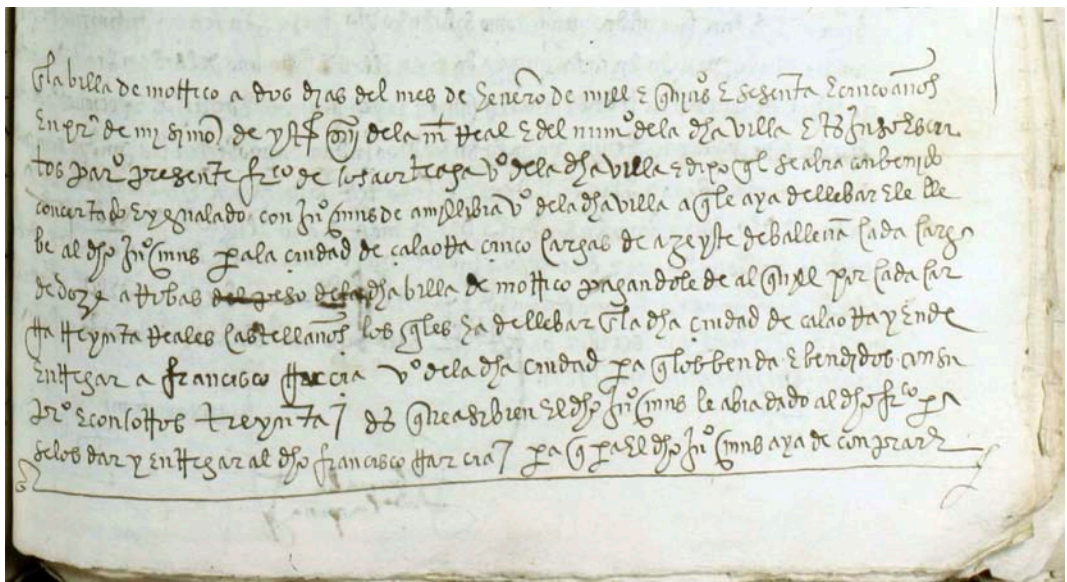 En la billa de mottrico a dos dias del mes de henero de mill e quinios e sesenta e cinco años
en pra de mi simon de yrª escriº de la mt Real e del numº de la dha villa e tsº yuso escri
tos pareº presente franco de los acurteaga vº de la dha villa e dixo quel se abia conbenido
concertado e ygualado con juº mns de amyllibia vº de la dha villa a que le aya de llebar e le lle
be al dho juº mns para la ciudad de calaorra cinco cargas de azeyte de ballena cada carga
de doze arrobas del peso de la dha billa de mottrico pagandole de alquiyll por cada car
ga treynta Reales castellanos los quales ha de llebar en la dha ciudad de calaorra y ende
entregar a francisco garcia vº de la dha ciudad para que los benda e bendidos con su
prº e con los otros treynta ds que reasrbien el dho juº mns le abia dado al dho franco para
se los dar y entregar al dho francisco garcia para que para el dho juº mns aya de conprar